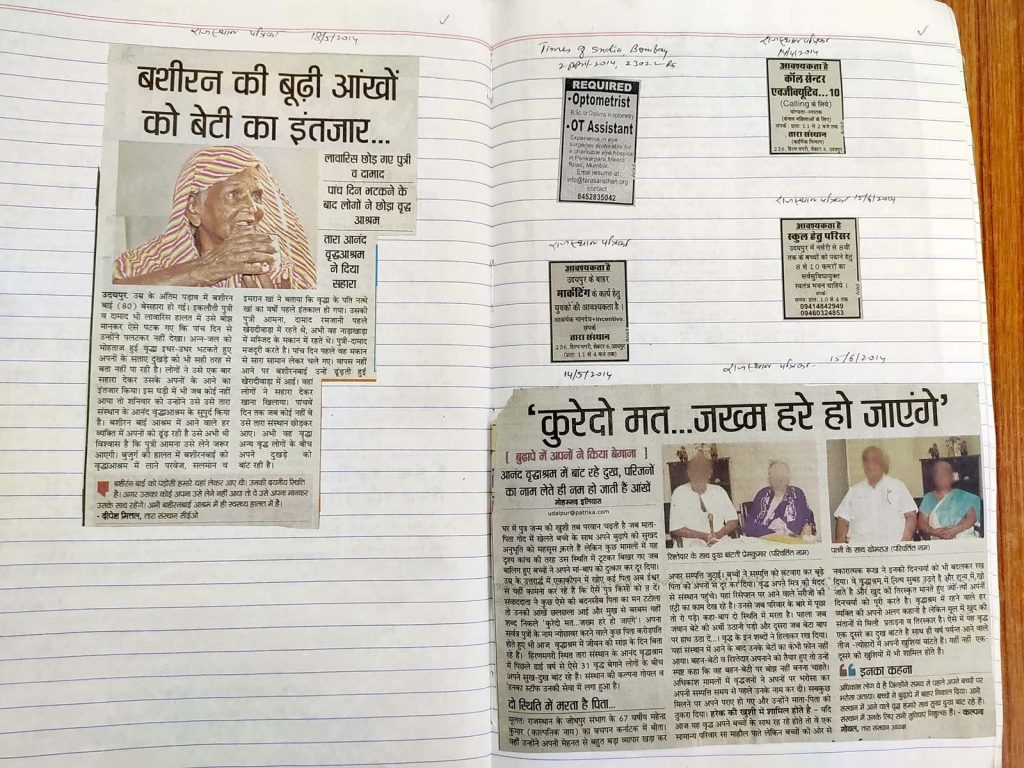 राजस्थान पत्रिका 18/5/2014
बशीरन की बूढ़ी आंखों
को बेटी का इंतजार...
लावारिस छोड़ गए पुत्री
व दामाद
पांच दिन भटकने के
बाद लोगों ने छोड़ा वृद्ध
आश्रम
तारा आनंद
वृद्धआश्रम
ने दिया
सहारा
उदयपुर. उम्र के अंतिम पड़ाव में बशीरन
बाई (80) बेसहारा हो गई। इकलौती पुत्री
व दामाद भी लावारिस हालत में उसे बोझ
मानकर ऐसे पटक गए कि पांच दिन से
उन्होंने पलटकर नहीं देखा। अन्न-जल को
मोहताज हुई वृद्धा इधर-उधर भटकते हुए
अपनों के सताए दुखड़े को भी सही तरह से
बता नहीं पा रही है। लोगों ने उसे एक बार
सहारा देकर उसके अपनों के आने का
इंतजार किया। इस घड़ी में भी जब कोई नहीं
आया तो शनिवार को उन्होंने उसे उसे तारा
संस्थान के आनंद वृद्धाआश्रम के सुपुर्द किया
है। बशीरन बाई आश्रम में आने वाले हर
व्यक्ति में अपनों को ढूंढ़ रही है उसे अभी भी
विश्वास है कि पुत्री आमना उसे लेने जरूर
आएगी। बुजुर्ग की हालत में बशीरनबाई को
वृद्धाआश्रम में लाने परवेज, सलमान व
इमरान खां ने बताया कि वृद्धा के पति नत्थे
खां का वर्षों पहले इंतकाल हो गया। उसकी
पुत्री आमना, दामाद रमजानी पहले
खेरादीवाड़ा में रहते थे, अभी वह नाड़ाखाड़ा
में मस्जिद के मकान में रहते थे। पुत्री-दामाद
मजदूरी करते है। पांच दिन पहले वह मकान
से सारा सामान लेकर चले गए। वापस नहीं
आने पर बशीरनबाई उन्हें ढूंढ़ती हुई
खेरादीवाड़ा में आई। वहां
लोगों ने सहारा देकर
खाना खिलाया। पांचवें
दिन तक जब कोई नहीं वे
उसे तारा संस्थान छोड़कर
आए। अभी वह वृद्धा
अन्य वृद्ध लोगों के बीच
अपने दुखड़े को
बांट रही है।
बशीरन बाई को पड़ोसी हमारे यहां लेकर आए थी। उनकी दयनीय स्थिति
है। अगर उसका कोई अपना उसे लेने नहीं आया तो वे उसे अपना मानकर
उसके साथ रहेंगे। अभी बशीरनबाई आश्रम में ही स्वस्थ्य हालत में है।
- दीपेश मित्तल, तारा संस्थान सीईओ
Times of India, Bombay
2 April-2014, 2302 Rs
REQUIRED
•Optometrist
B.Sc. or Diploma in optometry
•OT Assistant
Experience in eye
surgeries preferable for
a charitable eye hospital
in Penkarpara Meera
Road, Mumbai.
Email resume at
info@tarasansthan.org
contact
8452835042
राजस्थान पत्रिका
14/4/2014
आवश्यकता है
कॉल सेन्टर
एक्जीक्यूटिव...10
(Calling के लिये)
योग्यता-स्नातक
(केवल महिलाओं के लिए)
संपर्क : प्रातः 11 से 2 बजे तक
तारा संस्थान
(कार्मिक विभाग)
236, हिरण मगरी, सेक्टर 6, उदयपुर
राजस्थान पत्रिका 15/6/2014
आवश्यकता है
स्कुल हेतु परिसर
उदयपुर में नर्सरी से 8वीं
तक के बच्चों को पढाने हेतु
8 से 10 कमरों का
सर्वसुविधायुक्त
स्वतंत्र भवन चाहिये।
संपर्क
समय प्रातः 10 से 4 तक
09414842949
09460324853
राजस्थान पत्रिका
आवश्यकता है
उदयपुर के बाहर
मार्केटिंग के कार्य हेतु
युवको की आवश्यकता है।
आकर्षक मानदेय+Incentive.
संपर्क
तारा संस्थान
236, हिरण मगरी, सेक्टर 6, उदयपुर
(प्रातः 11 से 4 बजे तक)
14/5/2014
राजस्थान पत्रिका- 15/6/2014
‘कुरेदो मत...जख्म हरे हो जाएंगे’
[ बुढ़ापे में अपनों ने किया बेगाना ]
आनंद वृद्धाश्रम में बांट रहे दुख, परिजनों
का नाम लेते ही नम हो जाती हैं आंखें
मोहम्मद इलियास
udaipur@patrika.com
घर में पुत्र जन्म की खुशी तब परवान चढ़ती है जब माता-
पिता गोद में खेलते बच्चे के साथ अपने बुढ़ापे की सुखद
अनुभूति को महसूस करते हैं लेकिन कुछ मामलों में यह
दृश्य कांच की तरह उस स्थिति में टूटकर बिखर गए जब
बालिग हुए बच्चों ने अपने मां-बाप को दुत्कार कर दूर दिया।
उम्र के उत्तरार्द्ध में एकाकीपन में खोए कई पिता अब ईश्वर
से यहीं कामना कर रहे हैं कि ऐसे पुत्र किसी को न दें।
संवाददाता ने कुछ ऐसे की बदनसीब पिता का मन टटोला
तो उनकी आंखें छलछला आई और मुख से बरबस यहीं
शब्द निकले 'कुरेदो मत...जख्म हरे हो जाएंगे'। अपना
सर्वस्व पुत्रों के नाम न्योछावर करने वाले कुछ पिता करोड़पति
होते हुए भी आज वृद्धाश्रम में जीवन की सांझ के दिन बिता
रहे हैं। हिरणमगरी स्थित तारा संस्थान के आनंद वृद्धाश्रम
में पिछले ढाई वर्ष से ऐसे 31 वृद्ध बेगाने लोगों के बीच
अपने सुख-दुख बांट रहे हैं। संस्थान की कल्पना गोयल व
उनका स्टॉफ उनकी सेवा में लगा हुआ है।
दो स्थिति में मरता है पिता...
मूलतः राजस्थान के जोधपुर संभाग के 67 वर्षीय महेन्द्र
कुमार (काल्पनिक नाम) का बचपन कर्नाटक में बीता।
वहीं उन्होंने अपनी मेहनत से बहुत बड़ा व्यापार खड़ा कर
रिश्तेदार के साथ दुख बांटती प्रेमकुमार (परिवर्तित नाम)
पत्नी के साथ खेमराज (परिवर्तित नाम)
अपार सम्पत्ति जुटाई। बच्चों ने सम्पत्ति को बंटवारा कर बूढ़े
पिता को अपनों से दूर कर दिया। वृद्ध अपने मित्र की मदद
से संस्थान पहुंचे। यहां रिसेप्शन पर आने वाले मरीजों की
एंट्री का काम देख रहे है। उनसे जब परिवार के बारे में पूछा
तो रो पड़े। कहा-बाप दो स्थिति में मरता है। पहला जब
जवान बेटे की अर्थी उठानी पड़ी और दूसरा जब बेटा बाप
पर हाथ उठा दें...। वृद्ध के इन शब्दों ने हिलाकर रख दिया।
यहां संस्थान में आने के बाद उनके बेटों का कभी फोन नहीं
आया। बहन-बेटी व रिश्तेदार अपनाने को तैयार हुए तो उन्होंने
स्पष्ट कहा कि वह बहन-बेटी पर बोझ नहीं बनना चाहते।
अधिकांश मामलों में वृद्धजनों ने अपनों पर भरोसा कर
अपनी सम्पति समय से पहले उनके नाम कर दी। सबकुछ
मिलने पर अपने पराए हो गए और उन्होंने माता-पिता को
ठुकरा दिया। हरेक की खुशी में शामिल होते है - यदि
आज यह वृद्ध अपने बच्चों के साथ रह रहे होते तो वे एक
सामान्य परिवार सा माहौल पाते लेकिन बच्चों की ओर से
नकारात्मक रूख ने इनकी दिनचर्या को भी बदलकर रख
दिया। वे वृद्धाश्रम में नित्य सुबह उठते है और शून्य में खो
जाते है और खुद को तिरस्कृत मानते हुए ज्यों-त्यों अपनी
दिनचर्या को पूरी करते है। वृद्धाश्रम में रहने वाले हर
व्यक्ति की अपनी अलग कहानी है लेकिन मूल में खुद की
संतानों से मिली प्रताड़ना व तिरस्कार है। ऐसे में यह वृद्ध
एक दूसरे का दुख बांटते है साथ ही वर्ष पर्यन्त आने वाले
तीज -त्योहारों में अपनी खुशियां बांटते है। यहीं नहीं एक-
दूसरे की खुशियों में भी शामिल होते है।
इनका कहना
अधिकांश लोग वे है जिन्होंने समय से पहले अपने बच्चों पर
भरोसा जताया। बच्चों ने बुढ़ापे में बाहर निकाल दिया। अभी
संस्थान में आने वाले वृद्ध हमारे साथ दुख सुख बांट रहे है।
संस्थान में उनके लिए सभी सुविधाएं निशुल्क है। - कल्पना
गोयल, तारा संस्थान अध्यक्ष